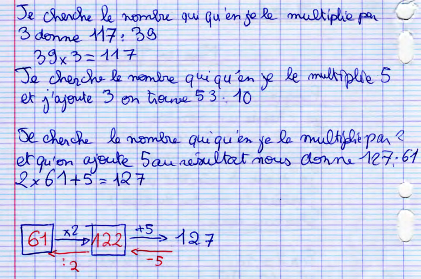 Je cherche le nombre qui qu'en je le multiplie par
3 donne 117 : 39
39 x 3 = 117
Je cherche le nombre qui qu'en je le multiplie 5
et j'ajoute 3 on trouve 53 : 10
Je cherche le nombre qui qu'en je le multiplie par 2
et qu'on ajoute 5 au résultat nous donne 127 : 61
2 x 61 + 5 = 127
61 x2 122 +5 127
:2 -5